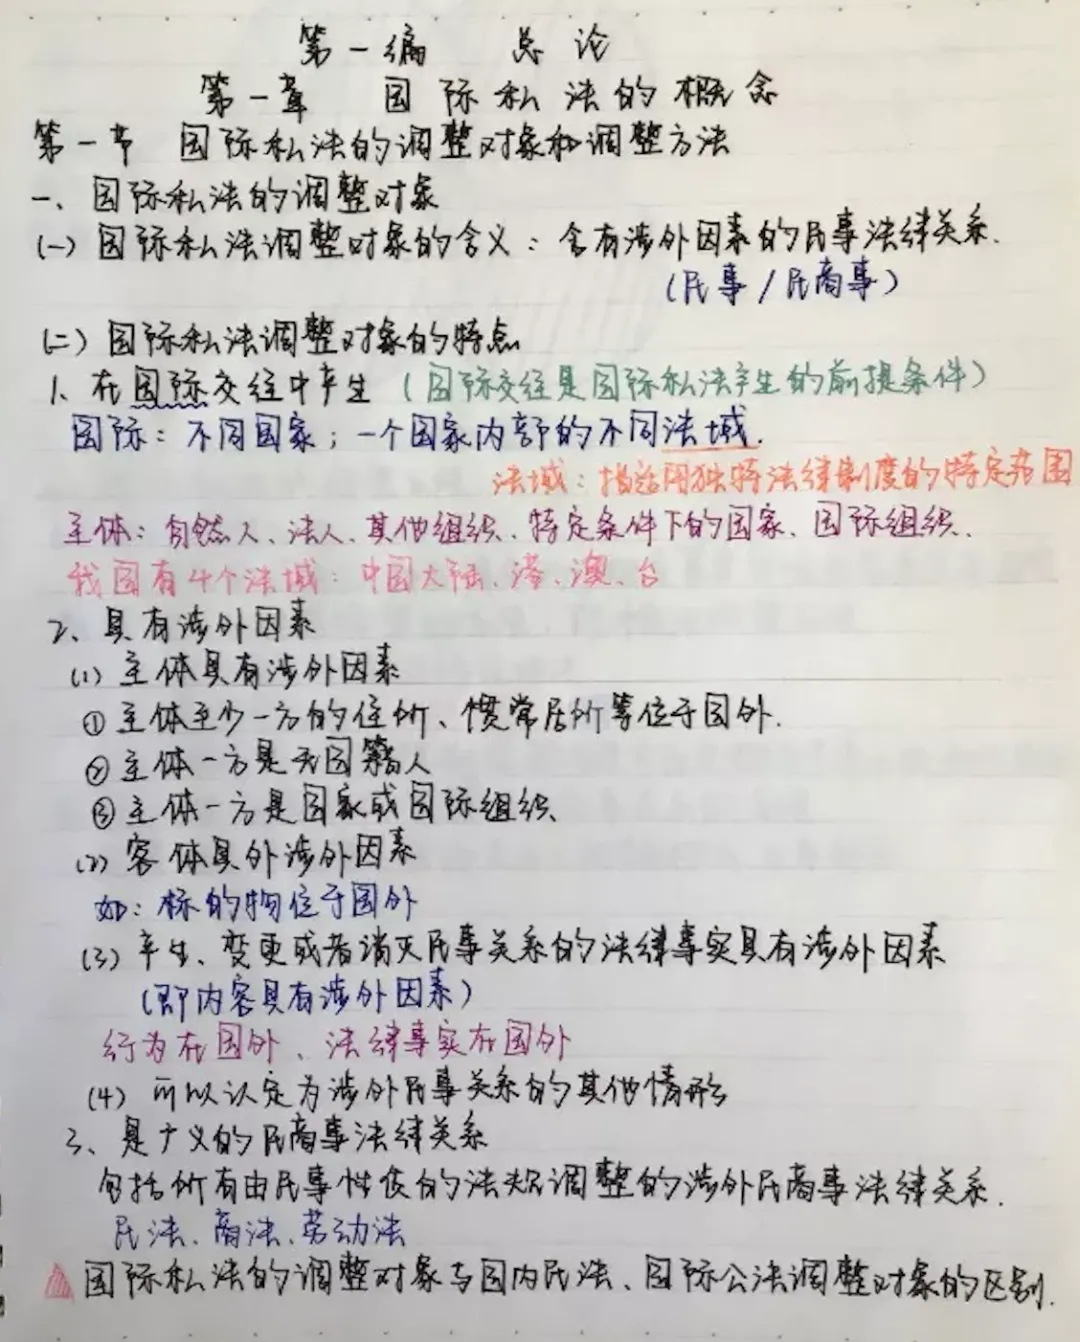 第一编 总论
第一章 国际私法的概念
第一节 国际私法的调整对象和调整方法
一、国际私法的调整对象
(一) 国际私法调整对象的含义：含有涉外因素的民事法律关系.
(民事/民商事)
(二) 国际私法调整对象的特点
1、在国际交往中产生 (国际交往是国际私法产生的前提条件)
国际：不同国家；一个国家内部的不同法域.
法域：指适用独特法律制度的特定范围
主体：自然人、法人、其他组织、特定条件下的国家、国际组织、
我国有4个法域：中国大陆、港、澳、台
2、具有涉外因素
(1) 主体具有涉外因素
① 主体至少一方的住所、惯常居所等位于国外.
② 主体一方是无国籍人
③ 主体一方是国家或国际组织、
(2) 客体具外涉外因素
如：标的物位于国外
(3) 产生、变更或者消灭民事关系的法律事实具有涉外因素
(即内容具有涉外因素)
行为在国外、法律事实在国外
(4) 可以认定为涉外民事关系的其他情形
3、是广义的民商事法律关系
包括所有由民事性质的法规调整的涉外民商事法律关系.
民法、商法、劳动法
国际私法的调整对象与国内民法、国际公法调整对象的区别.